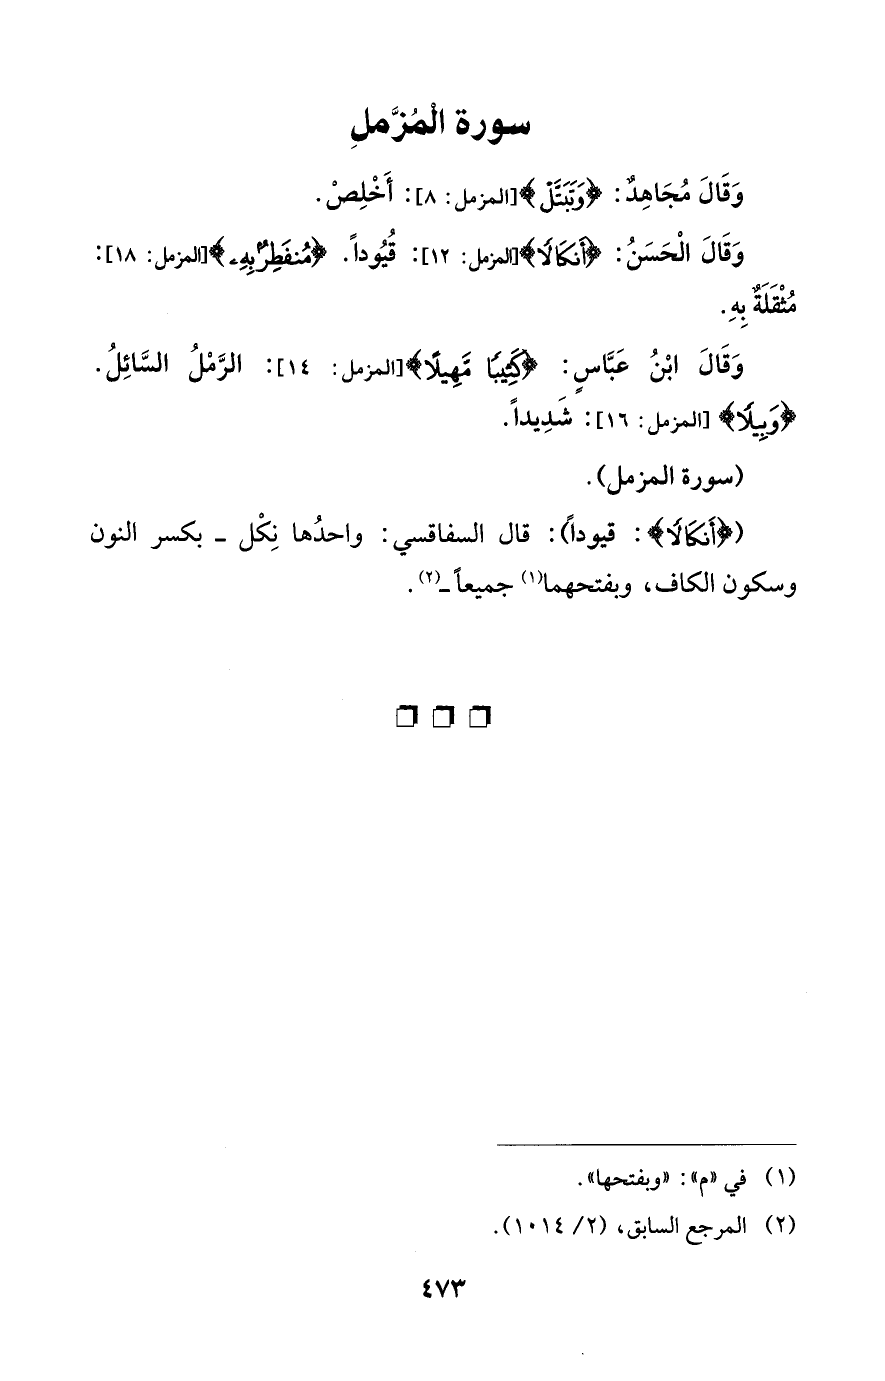 سورة الْمُزَّملِ
وَقَالَ مُجَاهِدٌ: ﴿وَتَبَتَّلْ﴾[المزمل: ٨]: أَخْلِصْ.
وَقَالَ الْحَسَنُ: ﴿أَنكَالًا﴾[المزمل: ١٢]: قُيُوداً. ﴿مُنفَطِرٌ بِهِۦ﴾[المزمل: ١٨]:
مُثْقَلَةٌ بِهِ.
وَقَالَ ابْنُ عَبَّاسٍ: ﴿كَثِيبًا مَّهِيلًا﴾[المزمل: ١٤]: الرَّمْلُ السَّائِلُ.
﴿وَبِيلًا﴾ [المزمل: ١٦]: شَدِيداً.
(سورة المزمل).
(﴿أَنكَالًا﴾: قيوداً): قال السفاقسي: واحدُها نِكْل ـ بكسر النون
وسكون الكاف، وبفتحهما(١) جميعاً ـ(٢).
(١) في «م»: «وبفتحها».
(٢) المرجع السابق، (٢/ ١٠١٤).
٤٧٣